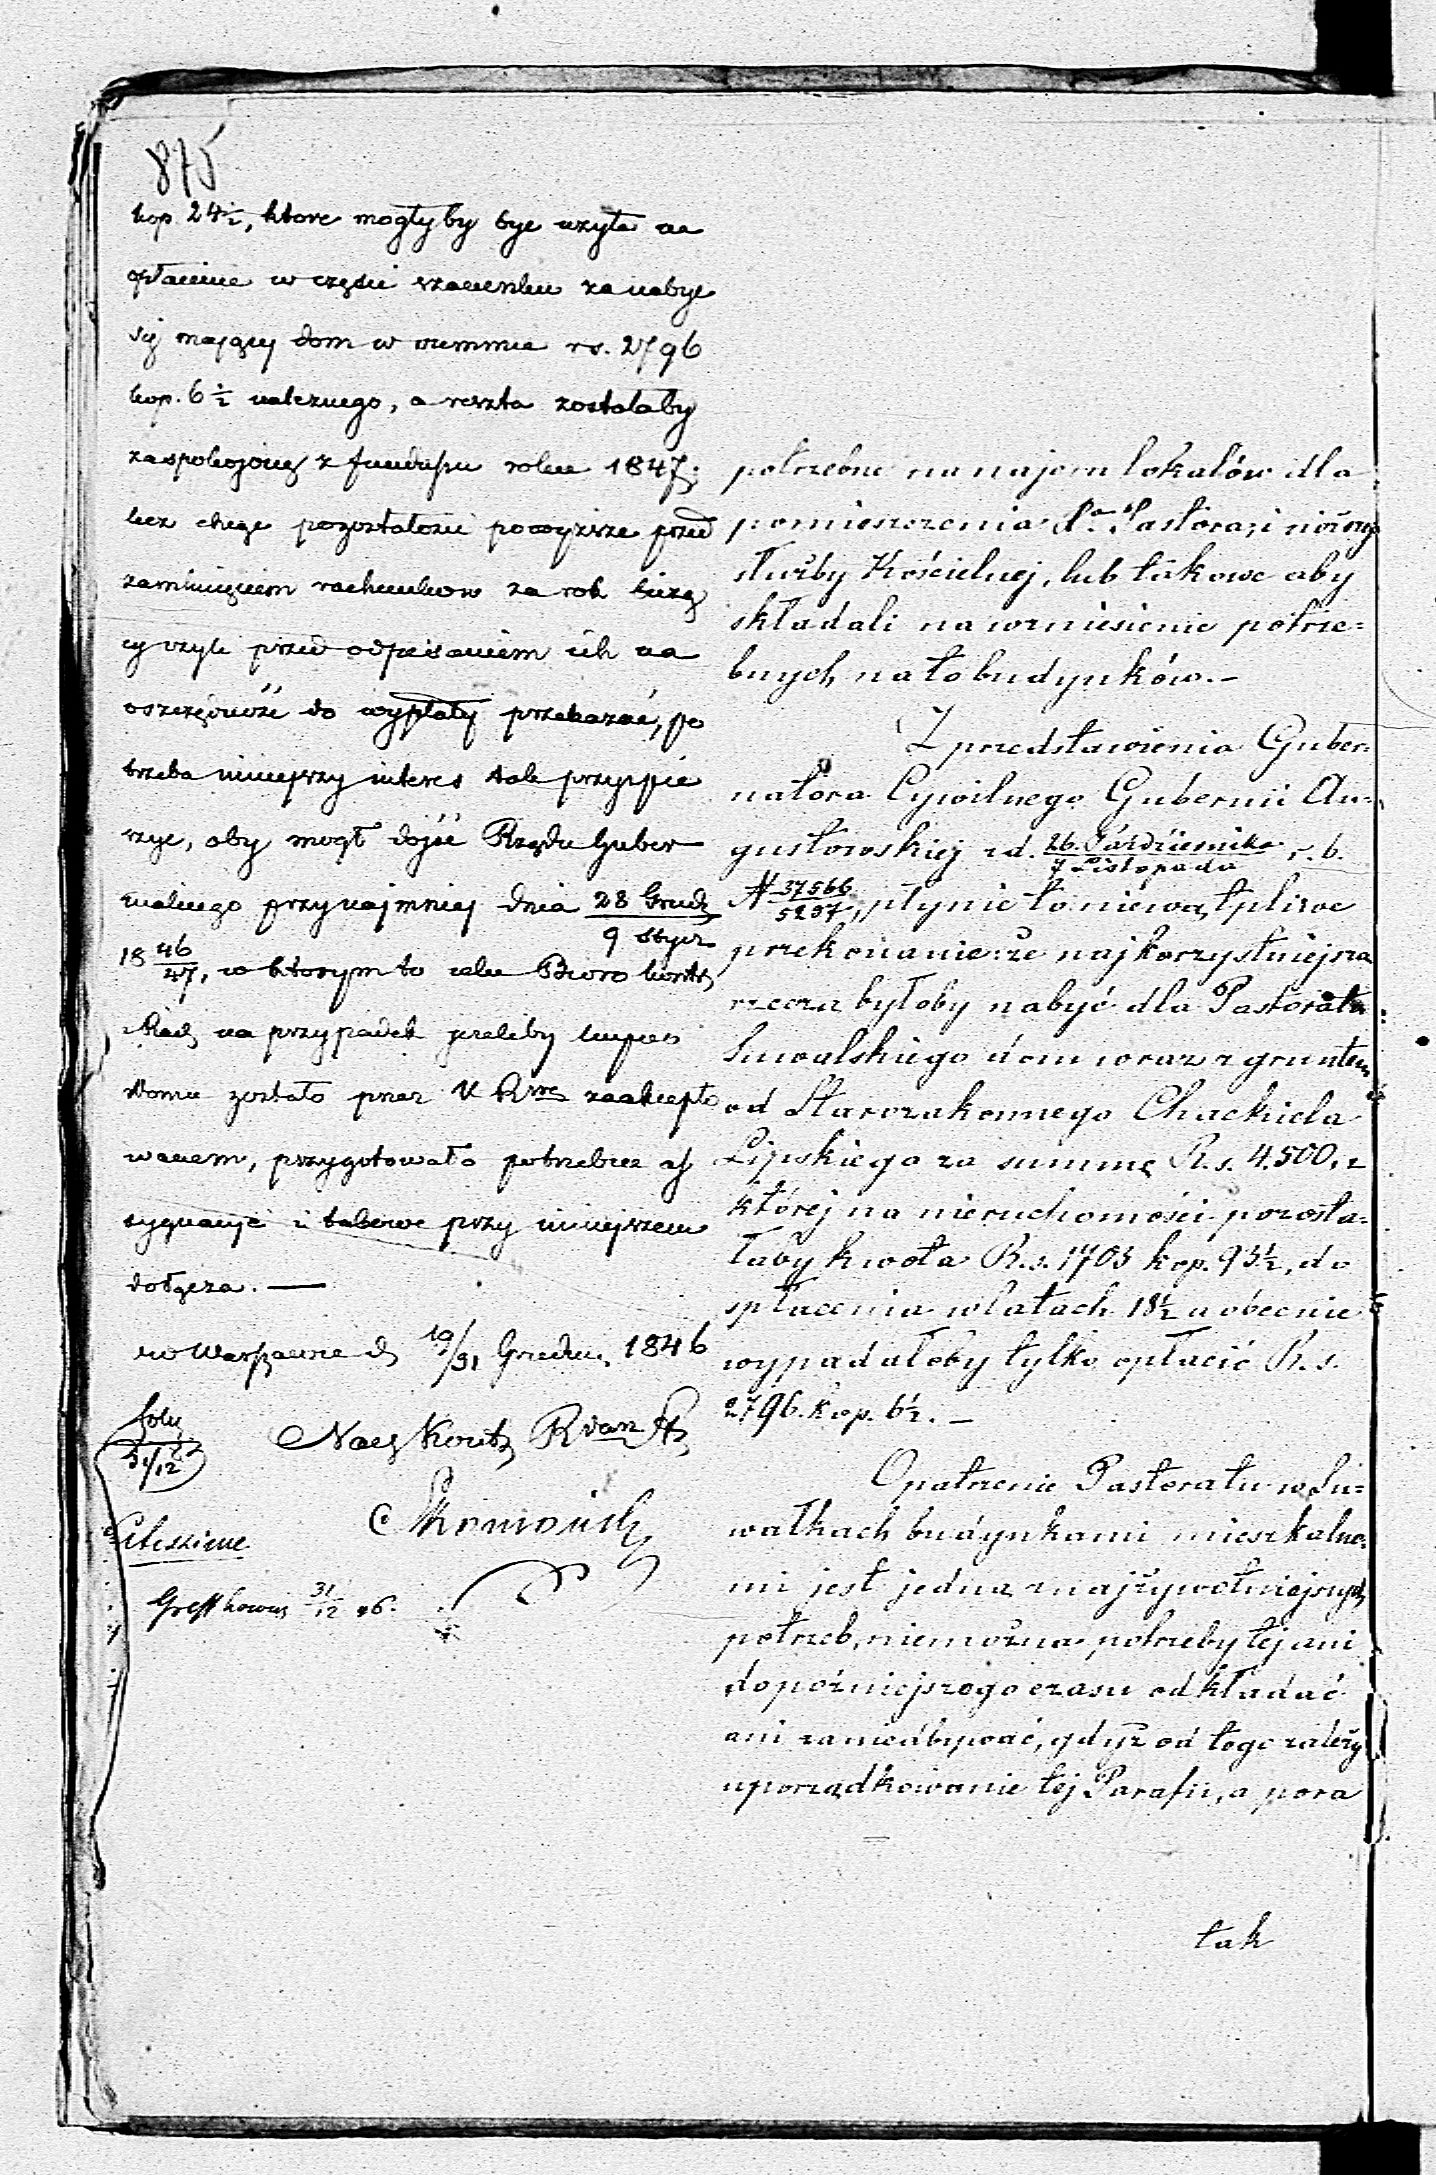 875
kop. 24½, ktore mogłyby byc uzyte na
opłacenie w części szacunku za nabyc
się mający dom w summie rs. 2796
kop. 6½ należnego, a reszta zostałaby
zaspokojoną z funduszu roku 1847;
lecz chcąc pozostałość powyższe przed
zamknięciem rachunkow za rok bieżą
cy czyli przed odpisaniem ich na
oszczędność do wypłaty przekazać, po
trzeba niniejszy interes tak przyspie
szyc, aby mogł dojść Rządu Guber
nialnego przynajmniej dnia 28 Grud
9 Stycz
18 46/47, w którym to celu Biuro Kontr
na przypadek jeżeliby kupno
domu zostało przez K R zaakcepto
wanem, przygotowało potrzebne as
sygnacye i takowe przy niniejszem
dołącza. —
w Warszawie d 19/31 Grudn. 1846
Nacz Kontr
31/12
31/12 46.
potrzebne na najem lokalów dla
pomieszczenia Pa Pastora, i niższej
służby Kościelnej, lub takowe aby
składali na wzniesienie potrze=
bnych na to budynków. —
Z przedstawienia Guber=
natora Cywilnego Gubernii Au=
gustowskiej z d. 26. Października / 7 Listopada r. b.
N 37566/5237, płynie to niewątpliwe
przekonanie: że najkorzystniejszą
rzeczą byłoby nabyć dla Pastoratu
Suwalskiego dom wraz z gruntem
od Starozakonnego Chackiela
Lipskiego za summę R. s. 4.500, z
której na nieruchomości pozosta=
łaby kwota R. s. 1703 kop. 93½, do
spłacenia w latach 18½ a obecnie
wypadałoby tylko opłacić R. s.
2796. kop. 6½. —
Opatrzenie Pastoratu w Su=
wałkach budynkami mieszkalne=
mi jest jedną z najżywotniejszych
potrzeb, niemożna potrzeby tej ani
do poźniejszego czasu odkładać
ani zaniedbywać, gdyż od tego zależy
uporządkowanie tej Parafii, a pora
tak